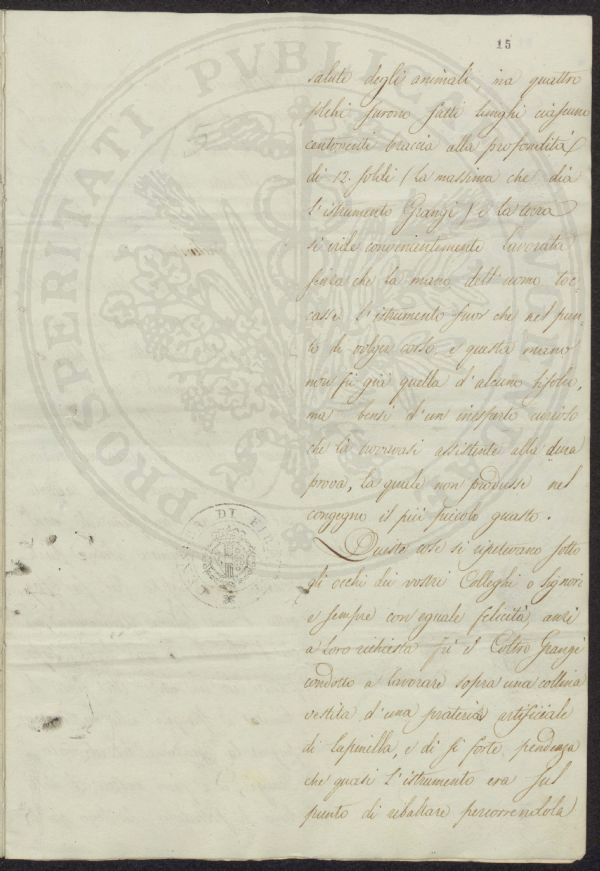 15
salute degli animali, ma quattro
solchi furono fatti lunghi ciascuno
centoventi braccia alla profondità
di 12. soldi (la massima che dia
l'istrumento Grangé) e la terra
si vide convenientemente lavorata
senza che la mano dell'uomo toc-
casse l'istrumento fuor che nel pun-
to di volger corso, e questa mano
non fù già quella d'alcuno bifolco,
ma bensì d'un inesperto curioso
che là trovavasi assistente alla dura
prova, la quale non produsse nel
congegno il più piccolo guasto.
Queste cose si ripetevano sotto
gli occhi dei vostri Colleghi o Signori
e sempre con eguale felicità, anzi
a loro richiesta fù il Coltro Grangé
condotto a lavorare sopra una collina
vestita d'una prateria artificiale
di lupinella, e di sì forte pendenza
che quasi l'istrumento era sul
punto di ribaltare percorrendola
PROSPERITATI PUBLICAE
DI FIRENZE